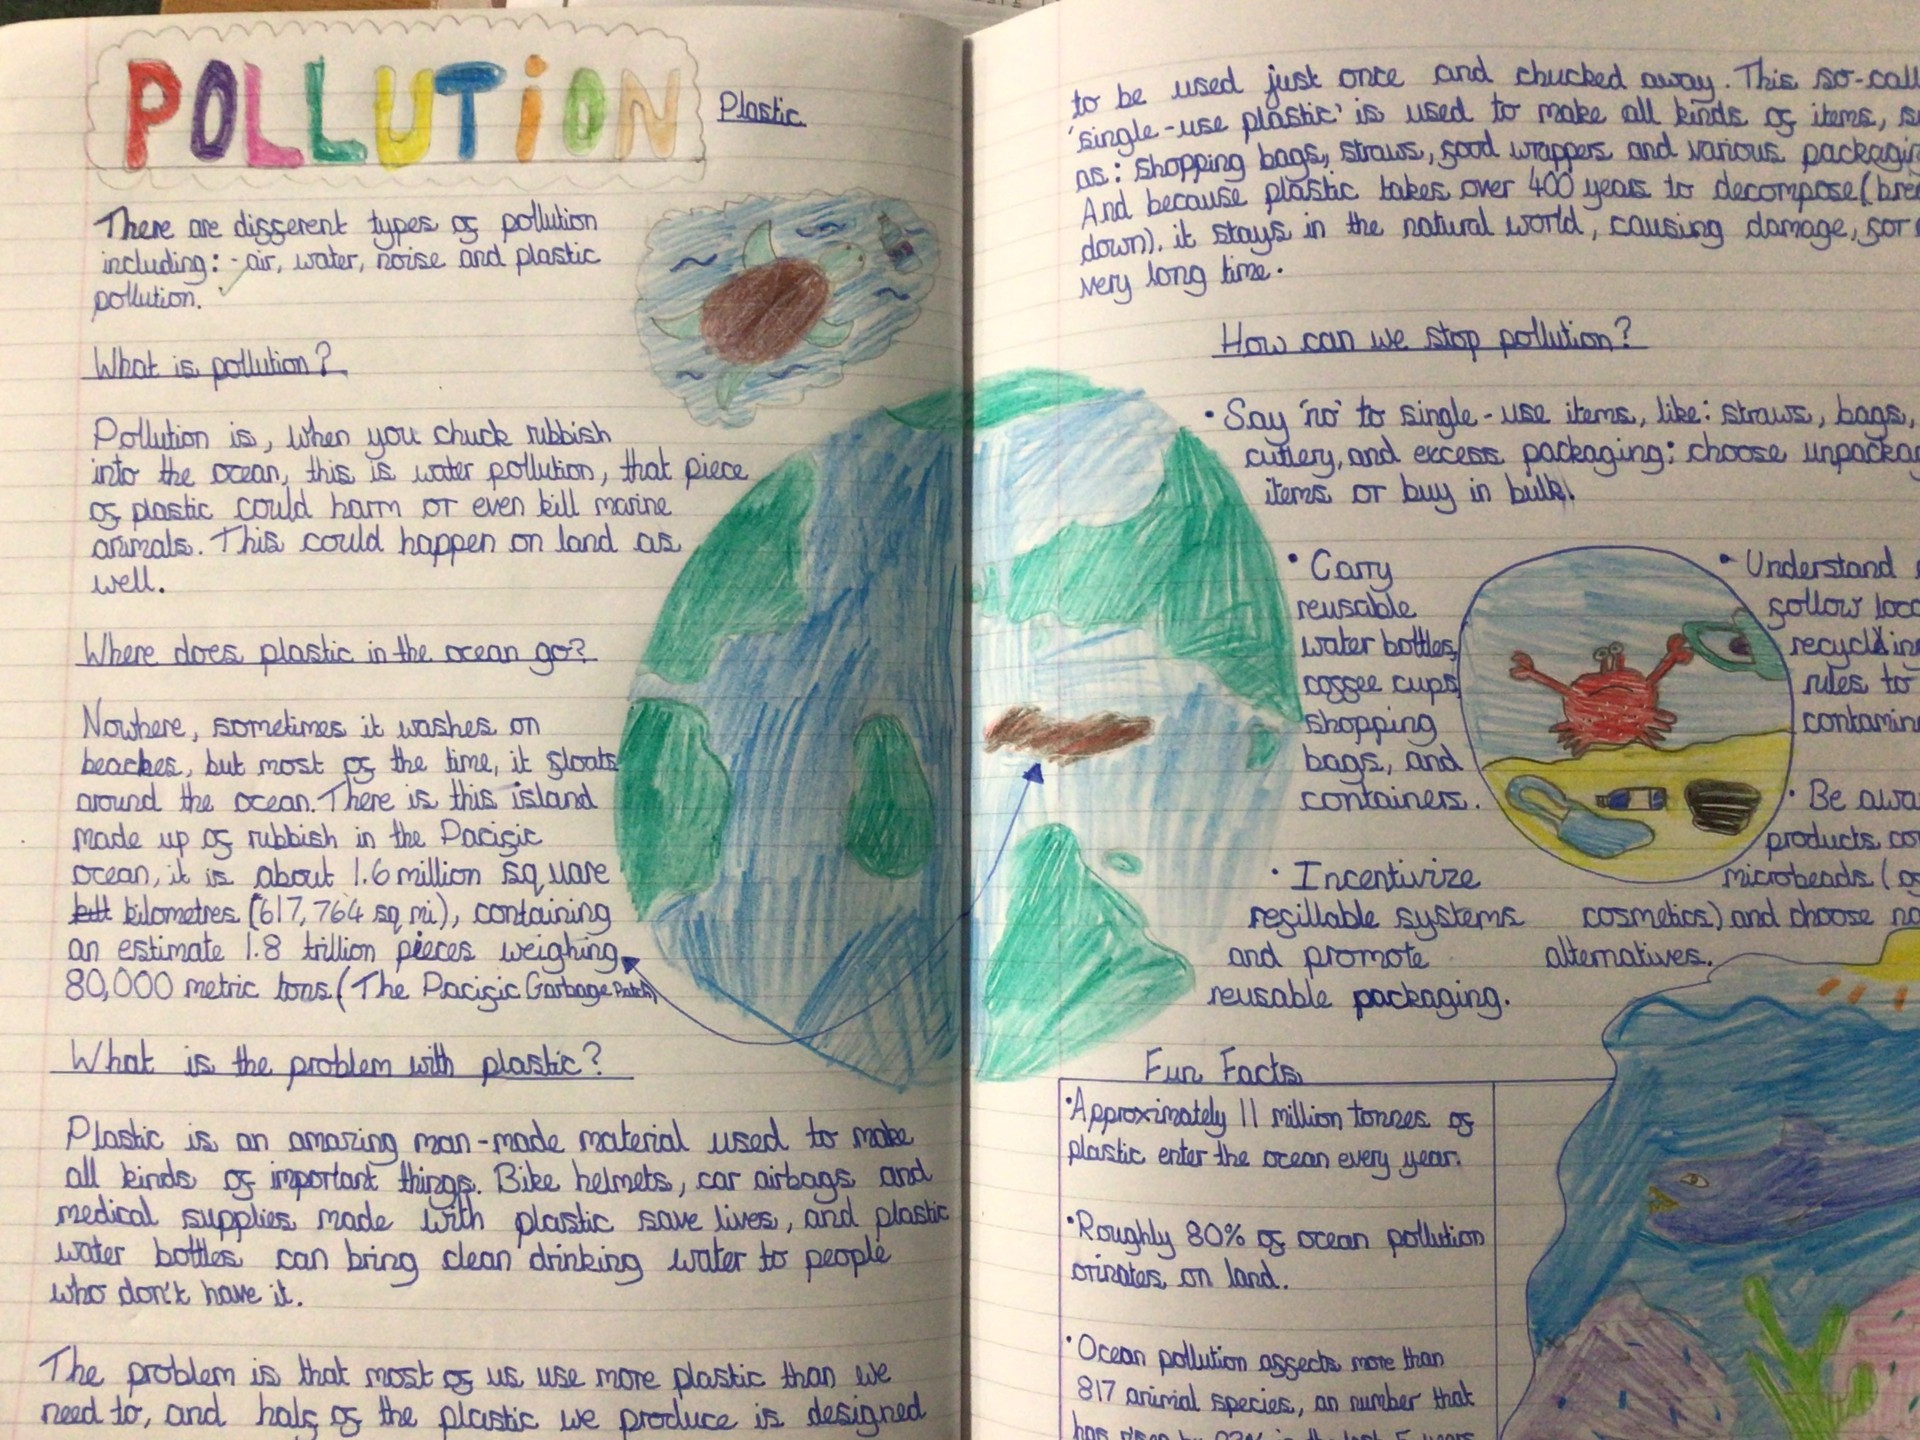 POLLUTiON
Plastic
There are different types of pollution
including: - air, water, noise and plastic
pollution.
What is pollution?
Pollution is, when you chuck rubbish
into the ocean, this is water pollution, that piece
of plastic could harm or even kill marine
animals. This could happen on land as
well.
Where does plastic in the ocean go?
Nowhere, sometimes it washes on
beaches, but most of the time, it floats
around the ocean. There is this island
made up of rubbish in the Pacific
ocean, it is about 1.6 million square
kilometres (617,764 sq mi), containing
an estimate 1.8 trillion pieces weighing
80,000 metric tons. (The Pacific Garbage Patch)
What is the problem with plastic?
Plastic is an amazing man-made material used to make
all kinds of important things. Bike helmets, car airbags and
medical supplies made with plastic save lives, and plastic
water bottles can bring clean drinking water to people
who don't have it.
The problem is that most of us use more plastic than we
need to, and half of the plastic we produce is designed
to be used just once and chucked away. This so-call
'single-use plastic' is used to make all kinds of items, su
as: shopping bags, straws, food wrappers and various packagin
And because plastic takes over 400 years to decompose (bre
down), it stays in the natural world, causing damage, for
very long time.
How can we stop pollution?
• Say 'no' to single-use items, like: straws, bags,
cutlery, and excess packaging; choose unpackag
items or buy in bulk.
• Carry
reusable
water bottles,
coffee cups,
shopping
bags, and
containers.
• Understand
follow loca
recycling
rules to
contamin
• Be awa
products con
microbeads (
cosmetics) and choose na
alternatives.
• Incentivize
refillable systems
and promote
reusable packaging.
Fun Facts
• Approximately 11 million tonnes of
plastic enter the ocean every year.
• Roughly 80% of ocean pollution
orinates on land.
• Ocean pollution affects more than
817 animal species, an number that
has risen by 23% in the last 5 years